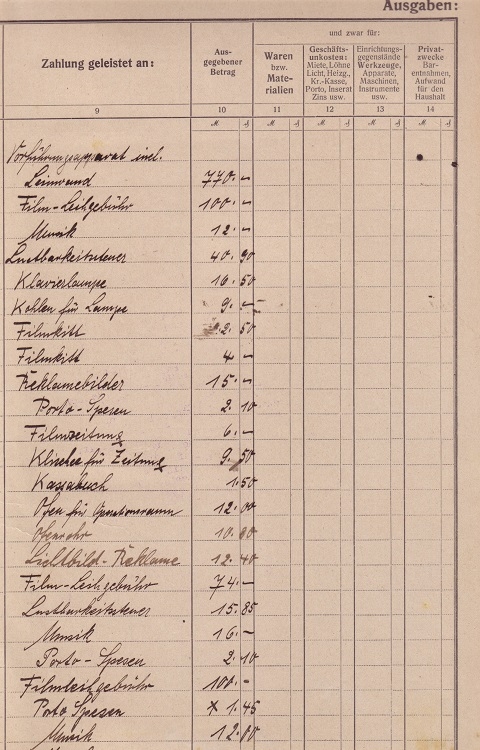 Ausgaben:
Zahlung geleistet an:
Aus-
gegebener
Betrag
und zwar für:
Waren
bzw.
Mate-
rialien
Geschäfts-
unkosten:
Miete, Löhne
Licht, Heizg.,
Kr.-Kasse,
Porto, Inserat
Zins usw.
Einrichtungs-
gegenstände
Werkzeuge,
Apparate,
Maschinen,
Instrumente
usw.
Privat-
zwecke
Bar-
entnahmen,
Aufwand
für den
Haushalt
9 10 11 12 13 14
Vorführungsapparat incl.
Leinwand 770.–
Film-Leihgebühr 100.–
Musik 12.–
Lustbarkeitsteuer 40.90
Klavierlampe 16.50
Kohlen für Lampe 9.–
Filmkitt 2.50
Filmkitt 4.–
Reklamebilder 15.–
Porto-Spesen 2.10
Filmzeitung 6.–
Klischee für Zeitung 9.50
Kassabuch 1.50
Ofen für Operationsraum 12.00
Ofenrohr 10.60
Lichtbild-Reklame 12.40
Film-Leihgebühr 74.–
Lustbarkeitsteuer 15.85
Musik 16.–
Porto-Spesen 2.10
Filmleihgebühr 100.–
Porto Spesen × 1.45
Musik 12.00